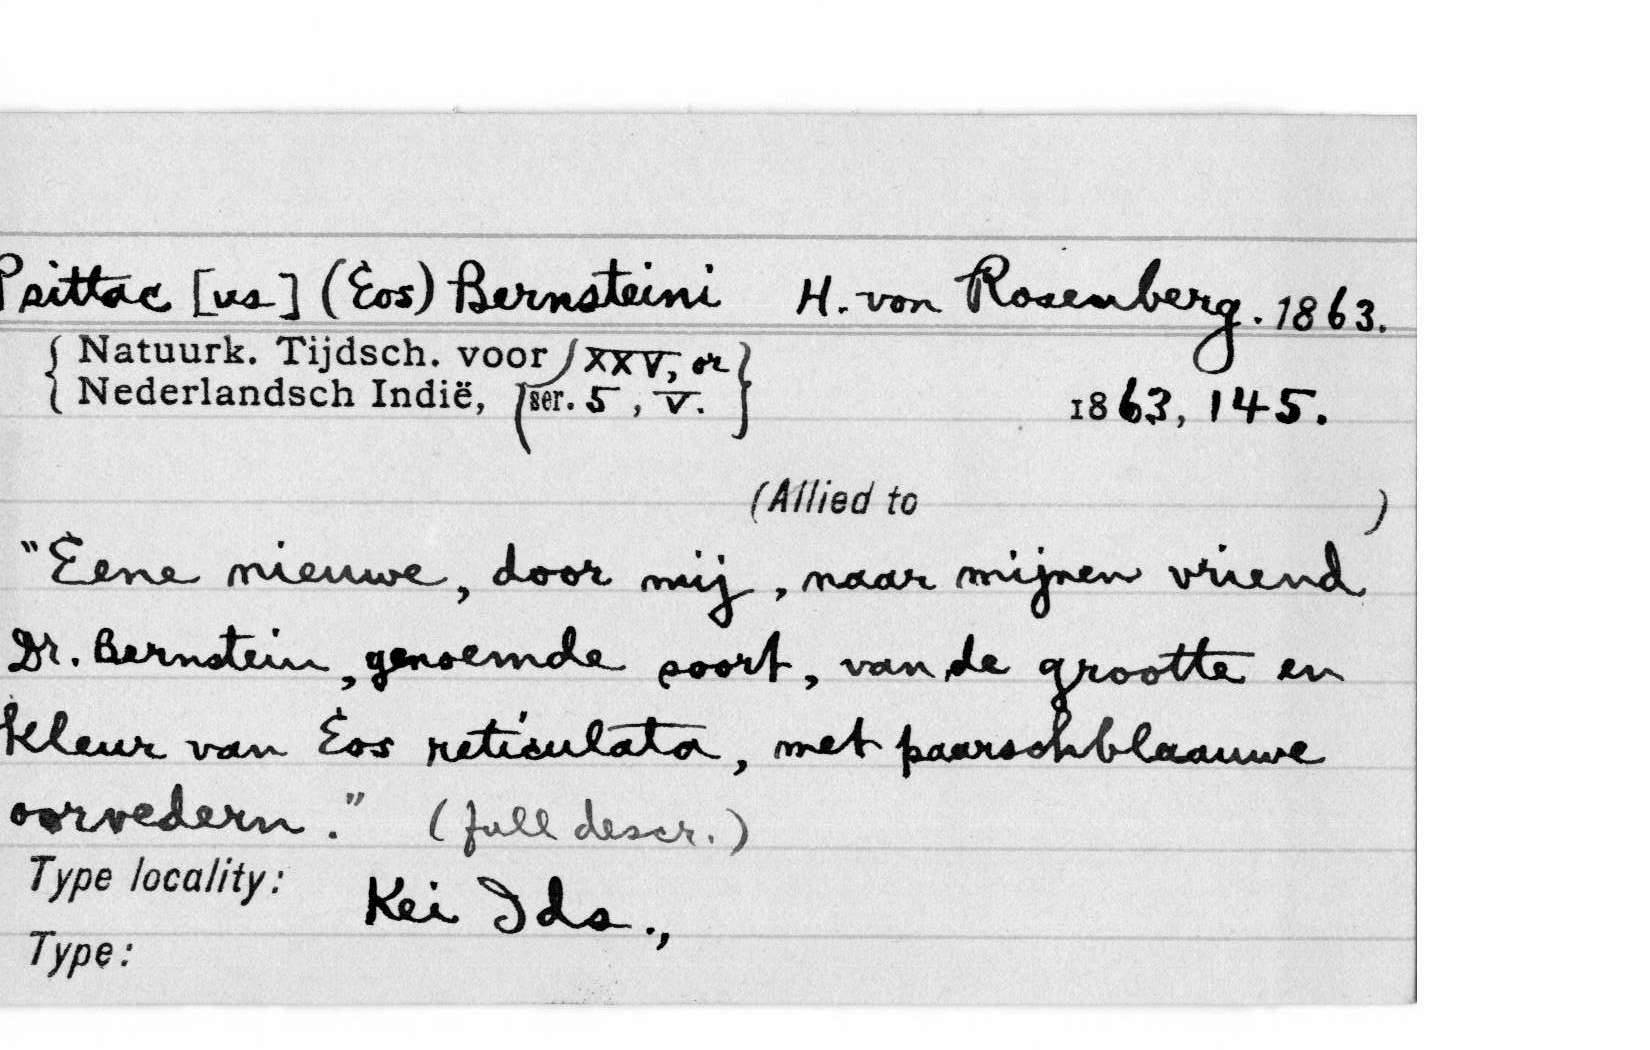 Psittac [us] (Eos) Bernsteini H. von Rosenberg. 1863.
{ Natuurk. Tijdsch. voor ( XXV, or }
{ Nederlandsch Indië, ( ser. 5, V. } 1863, 145.
(Allied to )
"Eene nieuwe, door mij, naar mijnen vriend
Dr. Bernstein, genoemde soort, van de grootte en
kleur van Eos reticulata, met paarschblaauwe
oorvedern." (full descr.)
Type locality: Kei Ids.,
Type: